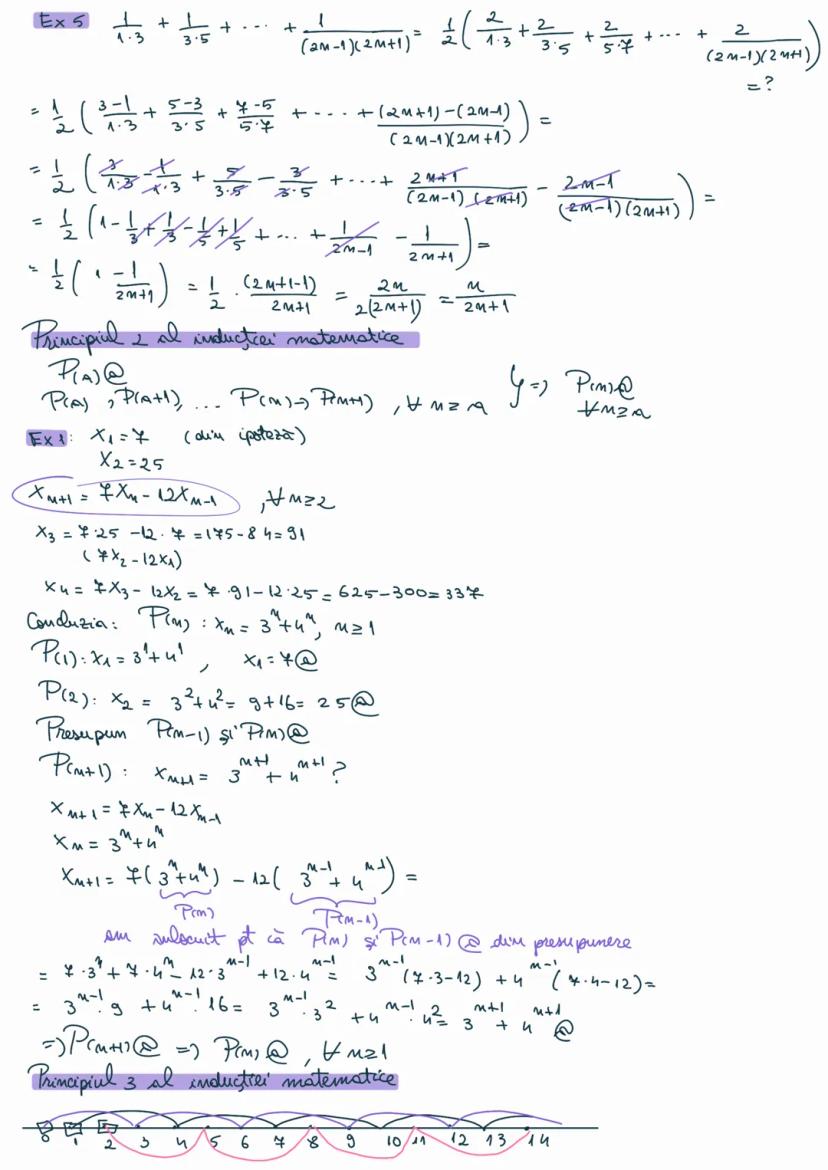 Ex 5 1/(1·3) + 1/(3·5) + ... + 1/((2n-1)(2n+1)) = 1/2 (2/(1·3) + 2/(3·5) + 2/(5·7) + ... + 2/((2n-1)(2n+1)))
= ?
= 1/2 ((3-1)/(1·3) + (5-3)/(3·5) + (7-5)/(5·7) + ... + ((2n+1)-(2n-1))/((2n-1)(2n+1))) =
= 1/2 (3/(1·3) - 1/(1·3) + 5/(3·5) - 3/(3·5) + ... + (2n+1)/((2n-1)(2n+1)) - (2n-1)/((2n-1)(2n+1))) =
= 1/2 (1 - 1/3 + 1/3 - 1/5 + 1/5 + ... + 1/(2n-1) - 1/(2n+1)) =
= 1/2 (1 - 1/(2n+1)) = 1/2 · (2n+1-1)/(2n+1) = 2n/(2(2n+1)) = n/(2n+1)
Principiul 2 al inducției matematice
P(a) Ⓐ
P(a), P(a+1), ... P(n) → P(n+1), ∀ n ≥ a } => P(n) Ⓐ ∀ n ≥ a
Ex 1: x₁ = 7 (din ipoteză)
x₂ = 25
xₙ₊₁ = 7xₙ - 12xₙ₋₁, ∀ n ≥ 2
x₃ = 7·25 - 12·7 = 175 - 84 = 91
(7x₂ - 12x₁)
x₄ = 7x₃ - 12x₂ = 7·91 - 12·25 = 625 - 300 = 337
Concluzia: P(n): xₙ = 3ⁿ + 4ⁿ, n ≥ 1
P(1): x₁ = 3¹ + 4¹, x₁ = 7 Ⓐ
P(2): x₂ = 3² + 4² = 9 + 16 = 25 Ⓐ
Presupun P(n-1) și P(n) Ⓐ
P(n+1): xₙ₊₁ = 3ⁿ⁺¹ + 4ⁿ⁺¹ ?
xₙ₊₁ = 7xₙ - 12xₙ₋₁
xₙ = 3ⁿ + 4ⁿ
xₙ₊₁ = 7(3ⁿ + 4ⁿ) - 12(3ⁿ⁻¹ + 4ⁿ⁻¹) =
P(n) P(n-1)
am înlocuit pt că P(n) și P(n-1) Ⓐ din presupunere
= 7·3ⁿ + 7·4ⁿ - 12·3ⁿ⁻¹ + 12·4ⁿ⁻¹ = 3ⁿ⁻¹(7·3-12) + 4ⁿ⁻¹(7·4-12) =
= 3ⁿ⁻¹·9 + 4ⁿ⁻¹·16 = 3ⁿ⁻¹·3² + 4ⁿ⁻¹·4² = 3ⁿ⁺¹ + 4ⁿ⁺¹ Ⓐ
=> P(n+1) Ⓐ => P(n) Ⓐ, ∀ n ≥ 1
Principiul 3 al inducției matematice
0 1 2 3 4 5 6 7 8 9 10 11 12 13 14